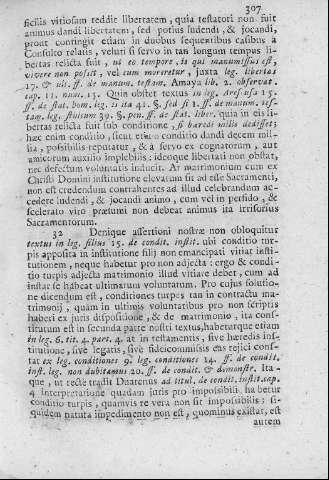 307
ficilis vitiosum reddit libertatem, quia testatori non fuit
animus dandi libertatem, sed potius ludendi, & jocandi,
prout contingit etiam in duobus sequentibus casibus a
Consulto relatis, veluti si servo in tan longum tempus li-
bertas relicta fuit, ut eo tempore, is qui manumissus est,
vivere non possit, vel cum moreretur, juxta leg. libertas
17. & ult. ff. de manum. testam. Amaya lib. 2. observat.
cap. 11. num. 15. Quin obstet textus in leg.
ff. de stat. bom. leg. si ita 41. §. sed si 1. ff. de manum. tes-
tam. leg. stuisum 39. §. pen. ff. de stat. liber. quia in eis li-
bertas relicta fuit sub conditione, si haredi millia dedisset;
hæc enim conditio, sicut etiam conditio dandi decem mil-
lia, possibilis reputatur, & a servo ex cognatorum, aut
amicorum auxilio implebilis: ideoque libertati non obstat,
nec defectum voluntatis inducit. At matrimonium cum ex
Christi Domini institutione elevatum sit ad esse Sacramenti,
non est credendum contrahentes ad illud celebrandum ac-
cedere ludendi, & jocandi animo, cum vel in persido, &
scelerato viro præsumi non debeat animus ita irrisorius
Sacramentorum.
32 Denique assertioni nostræ non obloquitur
textus in leg. filius 15. de condit. instit. ubi conditio tur-
pis apposita in institutione filij non emancipati vitiat insti-
tutionem, neque habetur pro non adjecta: ergo & condi-
tio turpis adjecta matrimonio illud vitiare debet, cum ad
instar se habeat ultimarum voluntatum. Pro cujus solutio-
ne dicendum est, conditiones turpes tan in contractu ma-
trimonij, quàm in ultimis voluntatibus pro non scriptis
haberi ex juris dispositione, & de matrimonio, ita cons-
titutum est in secunda parte nostri textus, habeturque etiam
in leg. 6. tit. 4. part. 4. at in testamentis, sive hæredis ins-
titutione, sive legatis, sive fideicommissis eas rejici cons-
tat ex leg. conditiones 9. leg. conditiones 14. ff. de condit.
inst. leg. non dubitamus 20. ff. de condit. & demonstr. Ita-
que, ut rectè tradit Duarenus ad titul. de condit. instit. cap.
4 interpretatione quadam juris pro impossibili habetur
conditio turpis, quamvis re vera non sit impossibilis: si-
quidem natura impedimento non est, quominus existat, est
autem